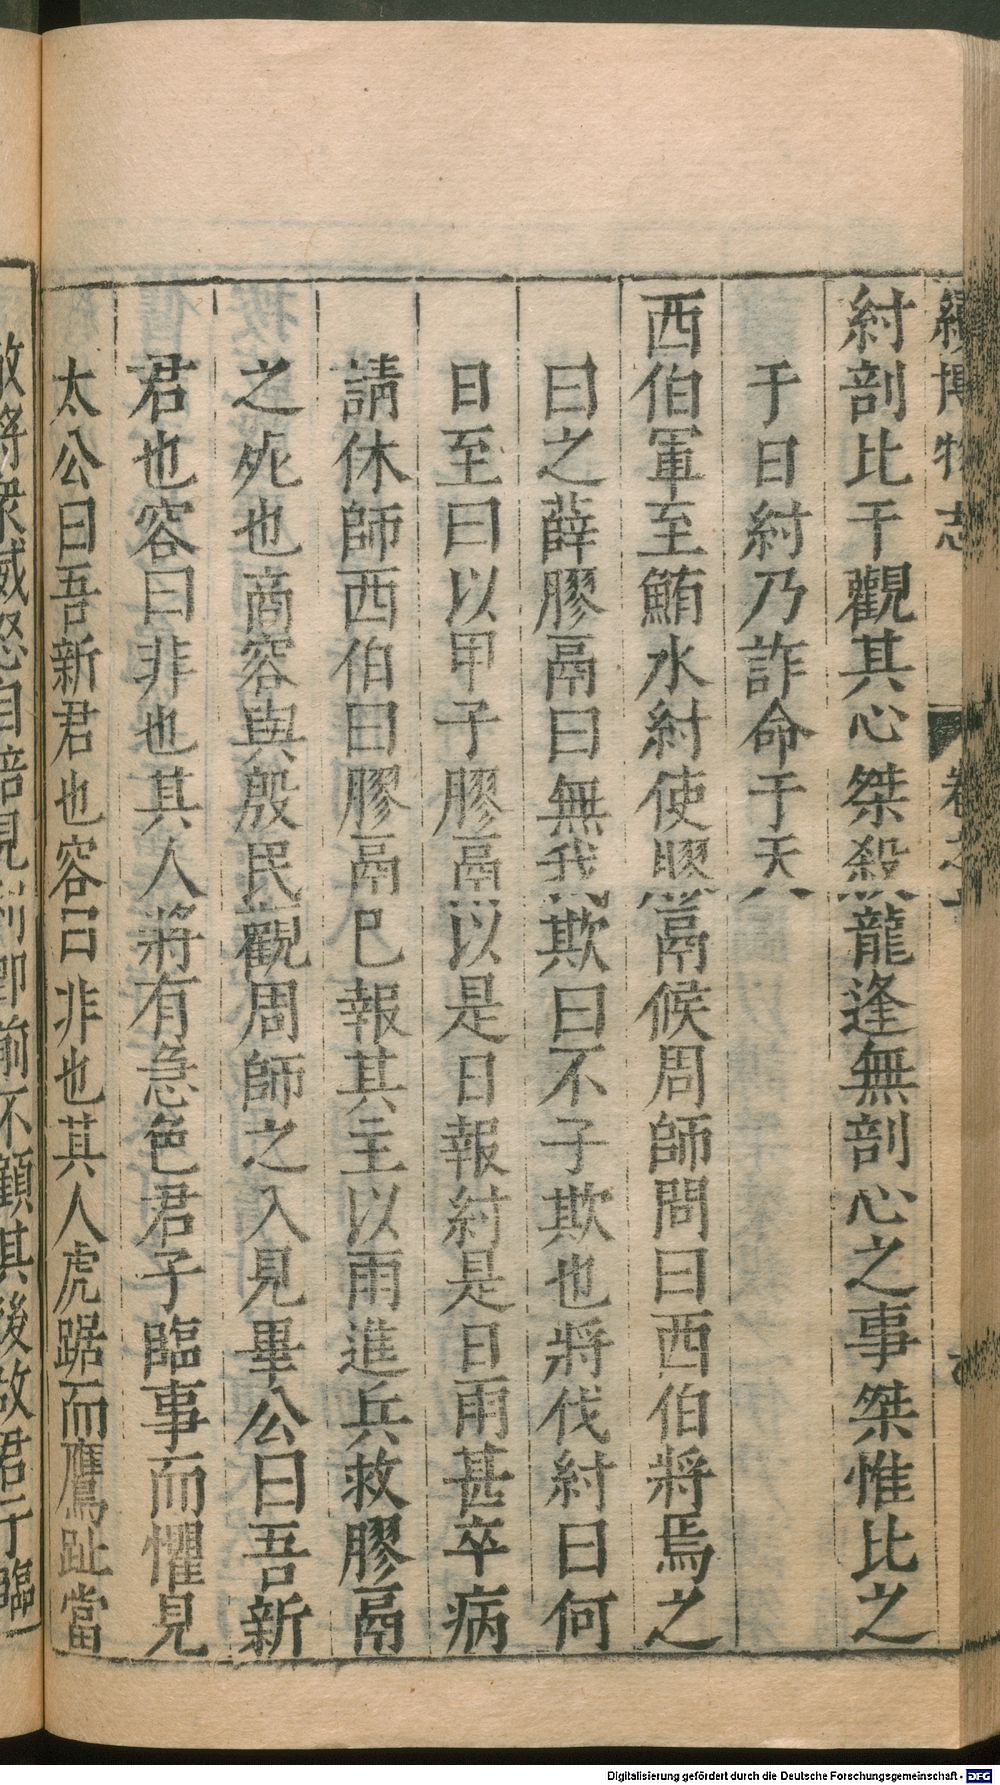 續博物志 卷之
紂剖比干觀其心桀殺龍逢無剖心之事桀惟比之
于日紂乃詐命于天
西伯軍至鮪水紂使膠鬲候周師問曰西伯將焉之
曰之薛膠鬲曰無我欺曰不子欺也將伐紂曰何
日至曰以甲子膠鬲以是日報紂是日雨甚卒病
請休師西伯曰膠鬲巳報其主以雨進兵救膠鬲
之死也商容與殷民觀周師之入見畢公曰吾新
君也容曰非也其人將有急色君子臨事而懼見
太公曰吾新君也容曰非也其人虎踞而鷹趾當
敵將衆威怒自倍見利卽前不顧其後故君子臨
Digitalisierung gefördert durch die Deutsche Forschungsgemeinschaft - DFG